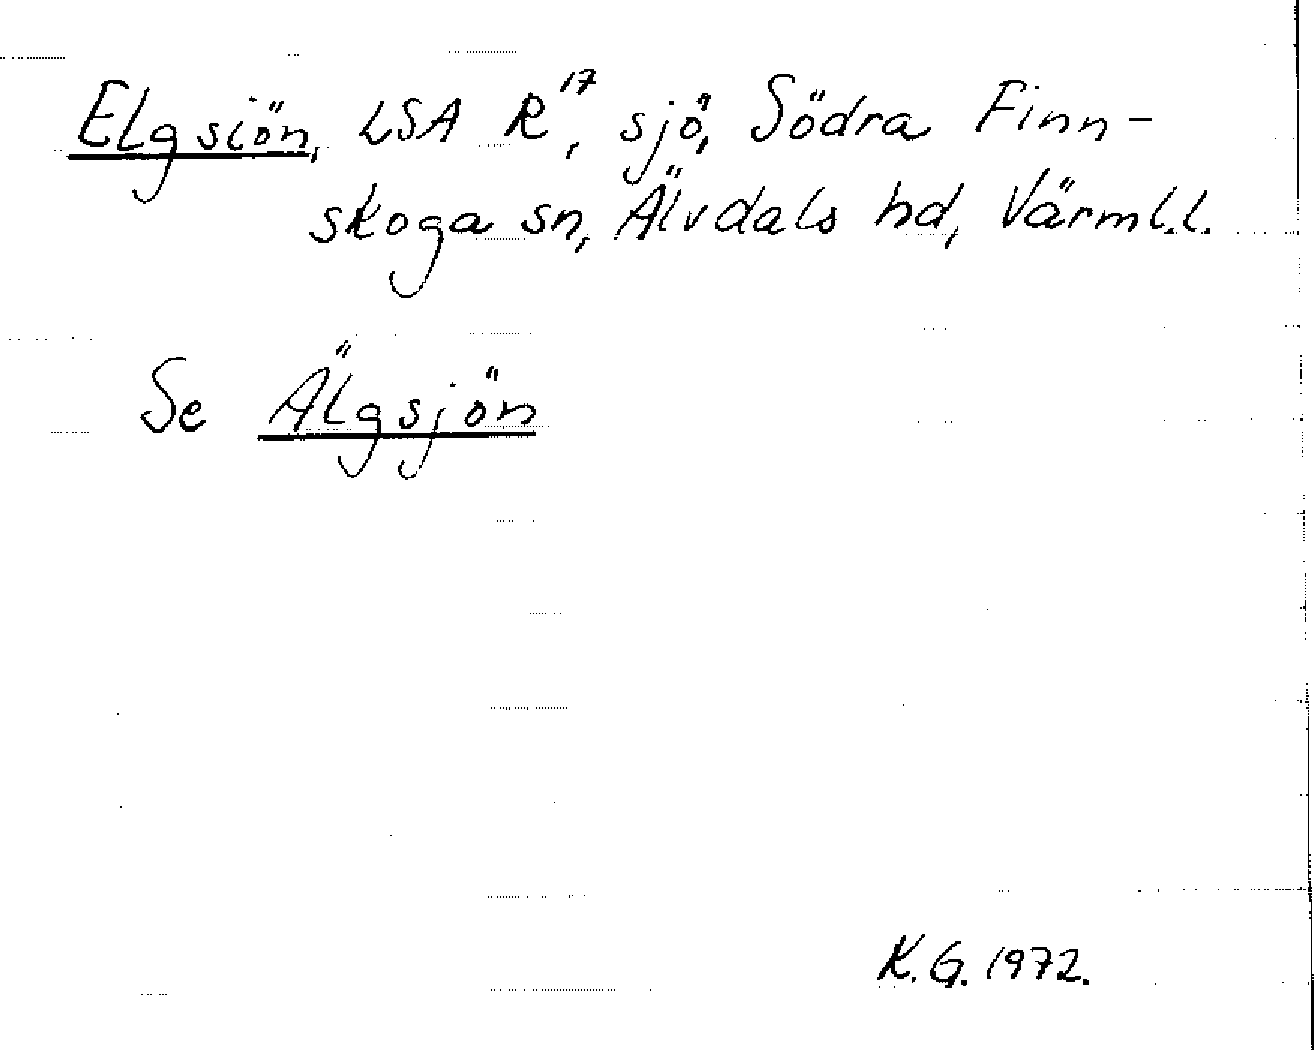 Elgsiön, LSA R¹⁷, sjö, Södra Finn-
skoga sn, Älvdals hd, Värml.l.
Se Älgsjön
K.G. 1972.